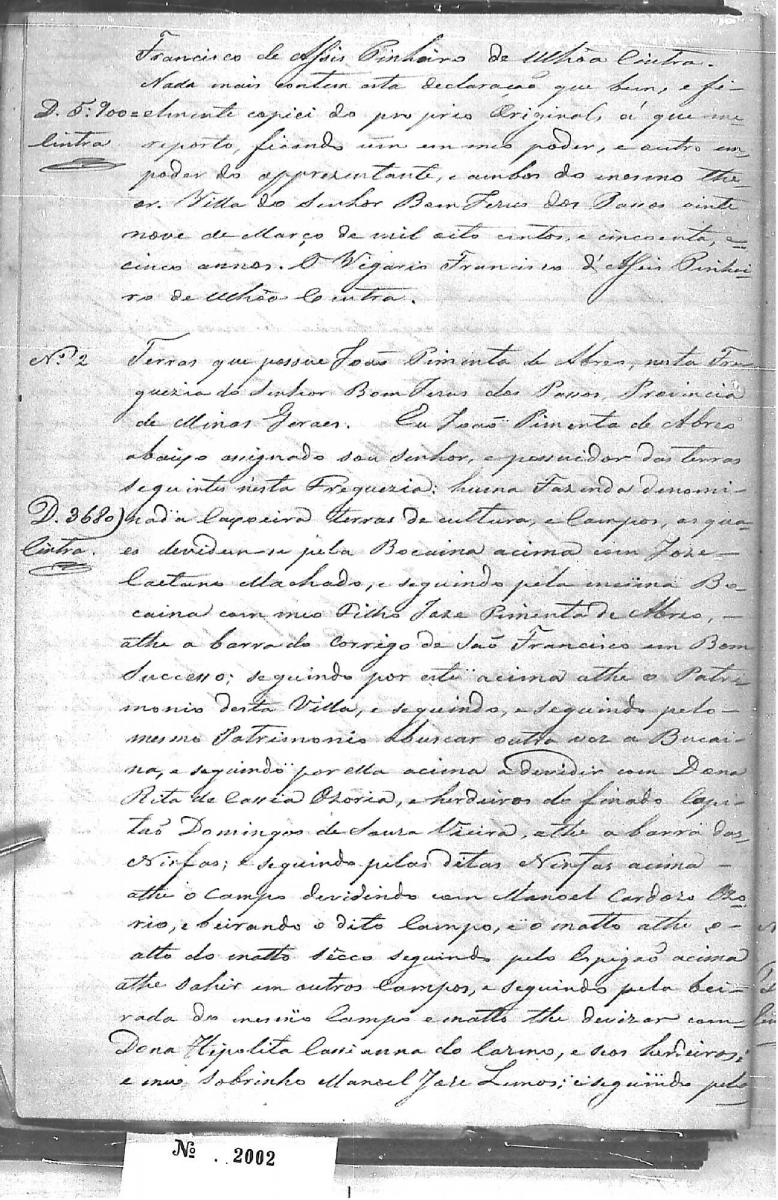 Francisco de Assis Pinheiro de Ulhôa Cintra.
Nada mais contem esta declaração que bem, e fi-
D. 5:900= elmente copiei do proprio Original, á que me
Cintra reporto, ficando um em meo poder, e outro em
poder do appresentante, e ambos do mesmo the-
or. Villa do Senhor Bom Jesus dos Passos vinte
nove de Março de mil oito centos, e cincoenta, e
cinco annos. O Vigario Francisco d'Assis Pinhei-
ro de Ulhôa Cintra.
Nº 2 Terras que possue João Pimenta de Abreo, nesta Fre-
guezia do Senhor Bom Jesus dos Passos, Provincia
de Minas Geraes. Eu João Pimenta de Abreo
abaixo assignado sou senhor, e possuidor das terras
seguintes nesta Freguezia: huma Fazenda denomi-
D. 3680) nada Caxoeira terras de cultura, e Campos, as qua-
Cintra. es devidem-se pela Bocaina acima com Joze
Caetano Machado, e seguindo pela mesma Bo-
caina com meo Filho Joze Pimenta de Abreo, -
athe a barra do Corrigo de São Francisco em Bom
Successo; seguindo por este acima athe o Patri-
monio desta Villa, e seguindo, e seguindo pelo
mesmo Patrimonio abuscar outra vez a Bocai-
na, e seguindo por ella acima a devidir com Dona
Rita de Cassia Ozoria, e herdeiros do finado Capi-
tão Domingos de Souza Vieira, athe a barra das
Ninfas; e seguindo pelas ditas Ninfas acima -
athe o campo devidindo com Manoel Cardozo Ozo-
rio, e beirando o dito Campo, e o matto athe o -
alto do matto sêcco seguindo pelo Espigão acima
athe sahir em outros Campos, e seguindo pela bei-
rada do mesmo Campo e matto the devizar com
Dona Hipolita Cassianna do Carmo, e seos herdeiros;
e meo Sobrinho Manoel Joze Lemos; e seguindo pelo
Nº . 2002